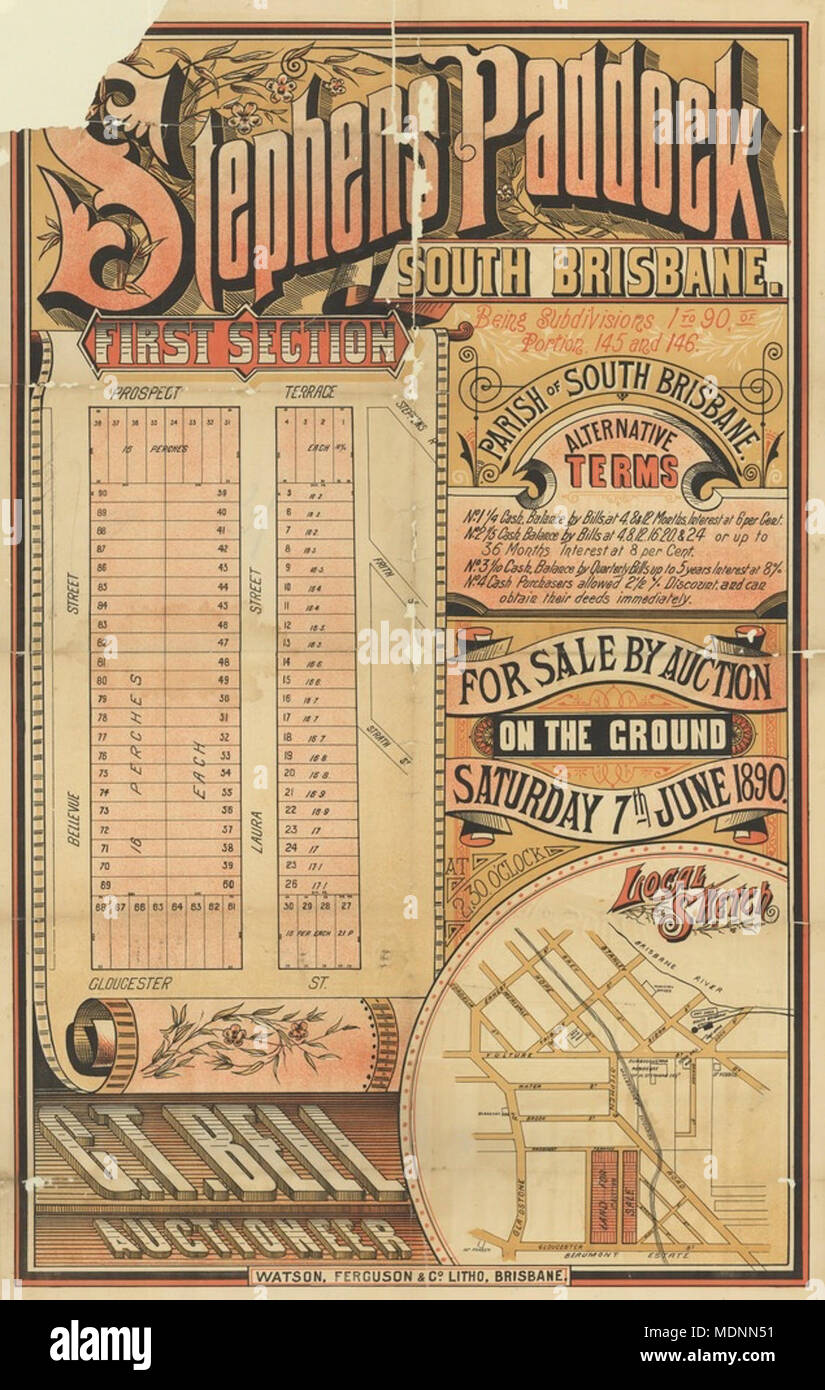 Stephens Paddock
SOUTH BRISBANE.
FIRST SECTION
Being Subdivisions 1 TO 90, OF
Portion 145 and 146.
PARISH OF SOUTH BRISBANE.
ALTERNATIVE
TERMS
No 1 1/4 Cash, Balance by Bills, at 4, 8 & 12 Months, Interest at 6 per Cent.
No 2 1/3 Cash Balance by Bills at 4.8.12.16.20 & 24 or up to
36 Months Interest at 8 per Cent.
No 3 1/10 Cash, Balance by Quarterly Bills up to 5 years Interest at 8%
No 4 Cash Purchasers allowed 2 1/2 % Discount, and can
obtain their deeds immediately.
FOR SALE BY AUCTION
ON THE GROUND
SATURDAY 7th JUNE 1890.
AT
2.30 O'CLOCK
PROSPECT TERRACE
STEPHENS
16 PERCHES
4 3 2 1
EACH
90 39
89 40
88 41
87 42
86 43
85 44
84 45
83 46
82 47
81 48
80 49
79 50
78 51
77 52
76 53
75 54
74 55
73 56
72 57
71 58
70 59
69 60
68 67 66 65 64 63 62 61
16 PERCHES EACH
5
6
7
8
9
10
11
12
13
14
15
16
17
18
19
20
21
22
23
24
25
26
30 29 28 27
16 PER EACH 21 P
BELLEVUE STREET
LAURA STREET
FRITH ST
STRATH ST
GLOUCESTER ST.
Local Sketch
BRISBANE RIVER
STANLEY
GREY
HOPE
VULTURE ST
WATER ST
BROOK ST
STEPHEN
ROAD
GLADSTONE
PROSPECT TERRACE
LAND FOR SALE
GLOUCESTER ST
BEAUMONT ESTATE
G.T. BELL
AUCTIONEER
WATSON, FERGUSON & Co LITHO, BRISBANE.
alamy
Image ID: MDNN51
www.alamy.com